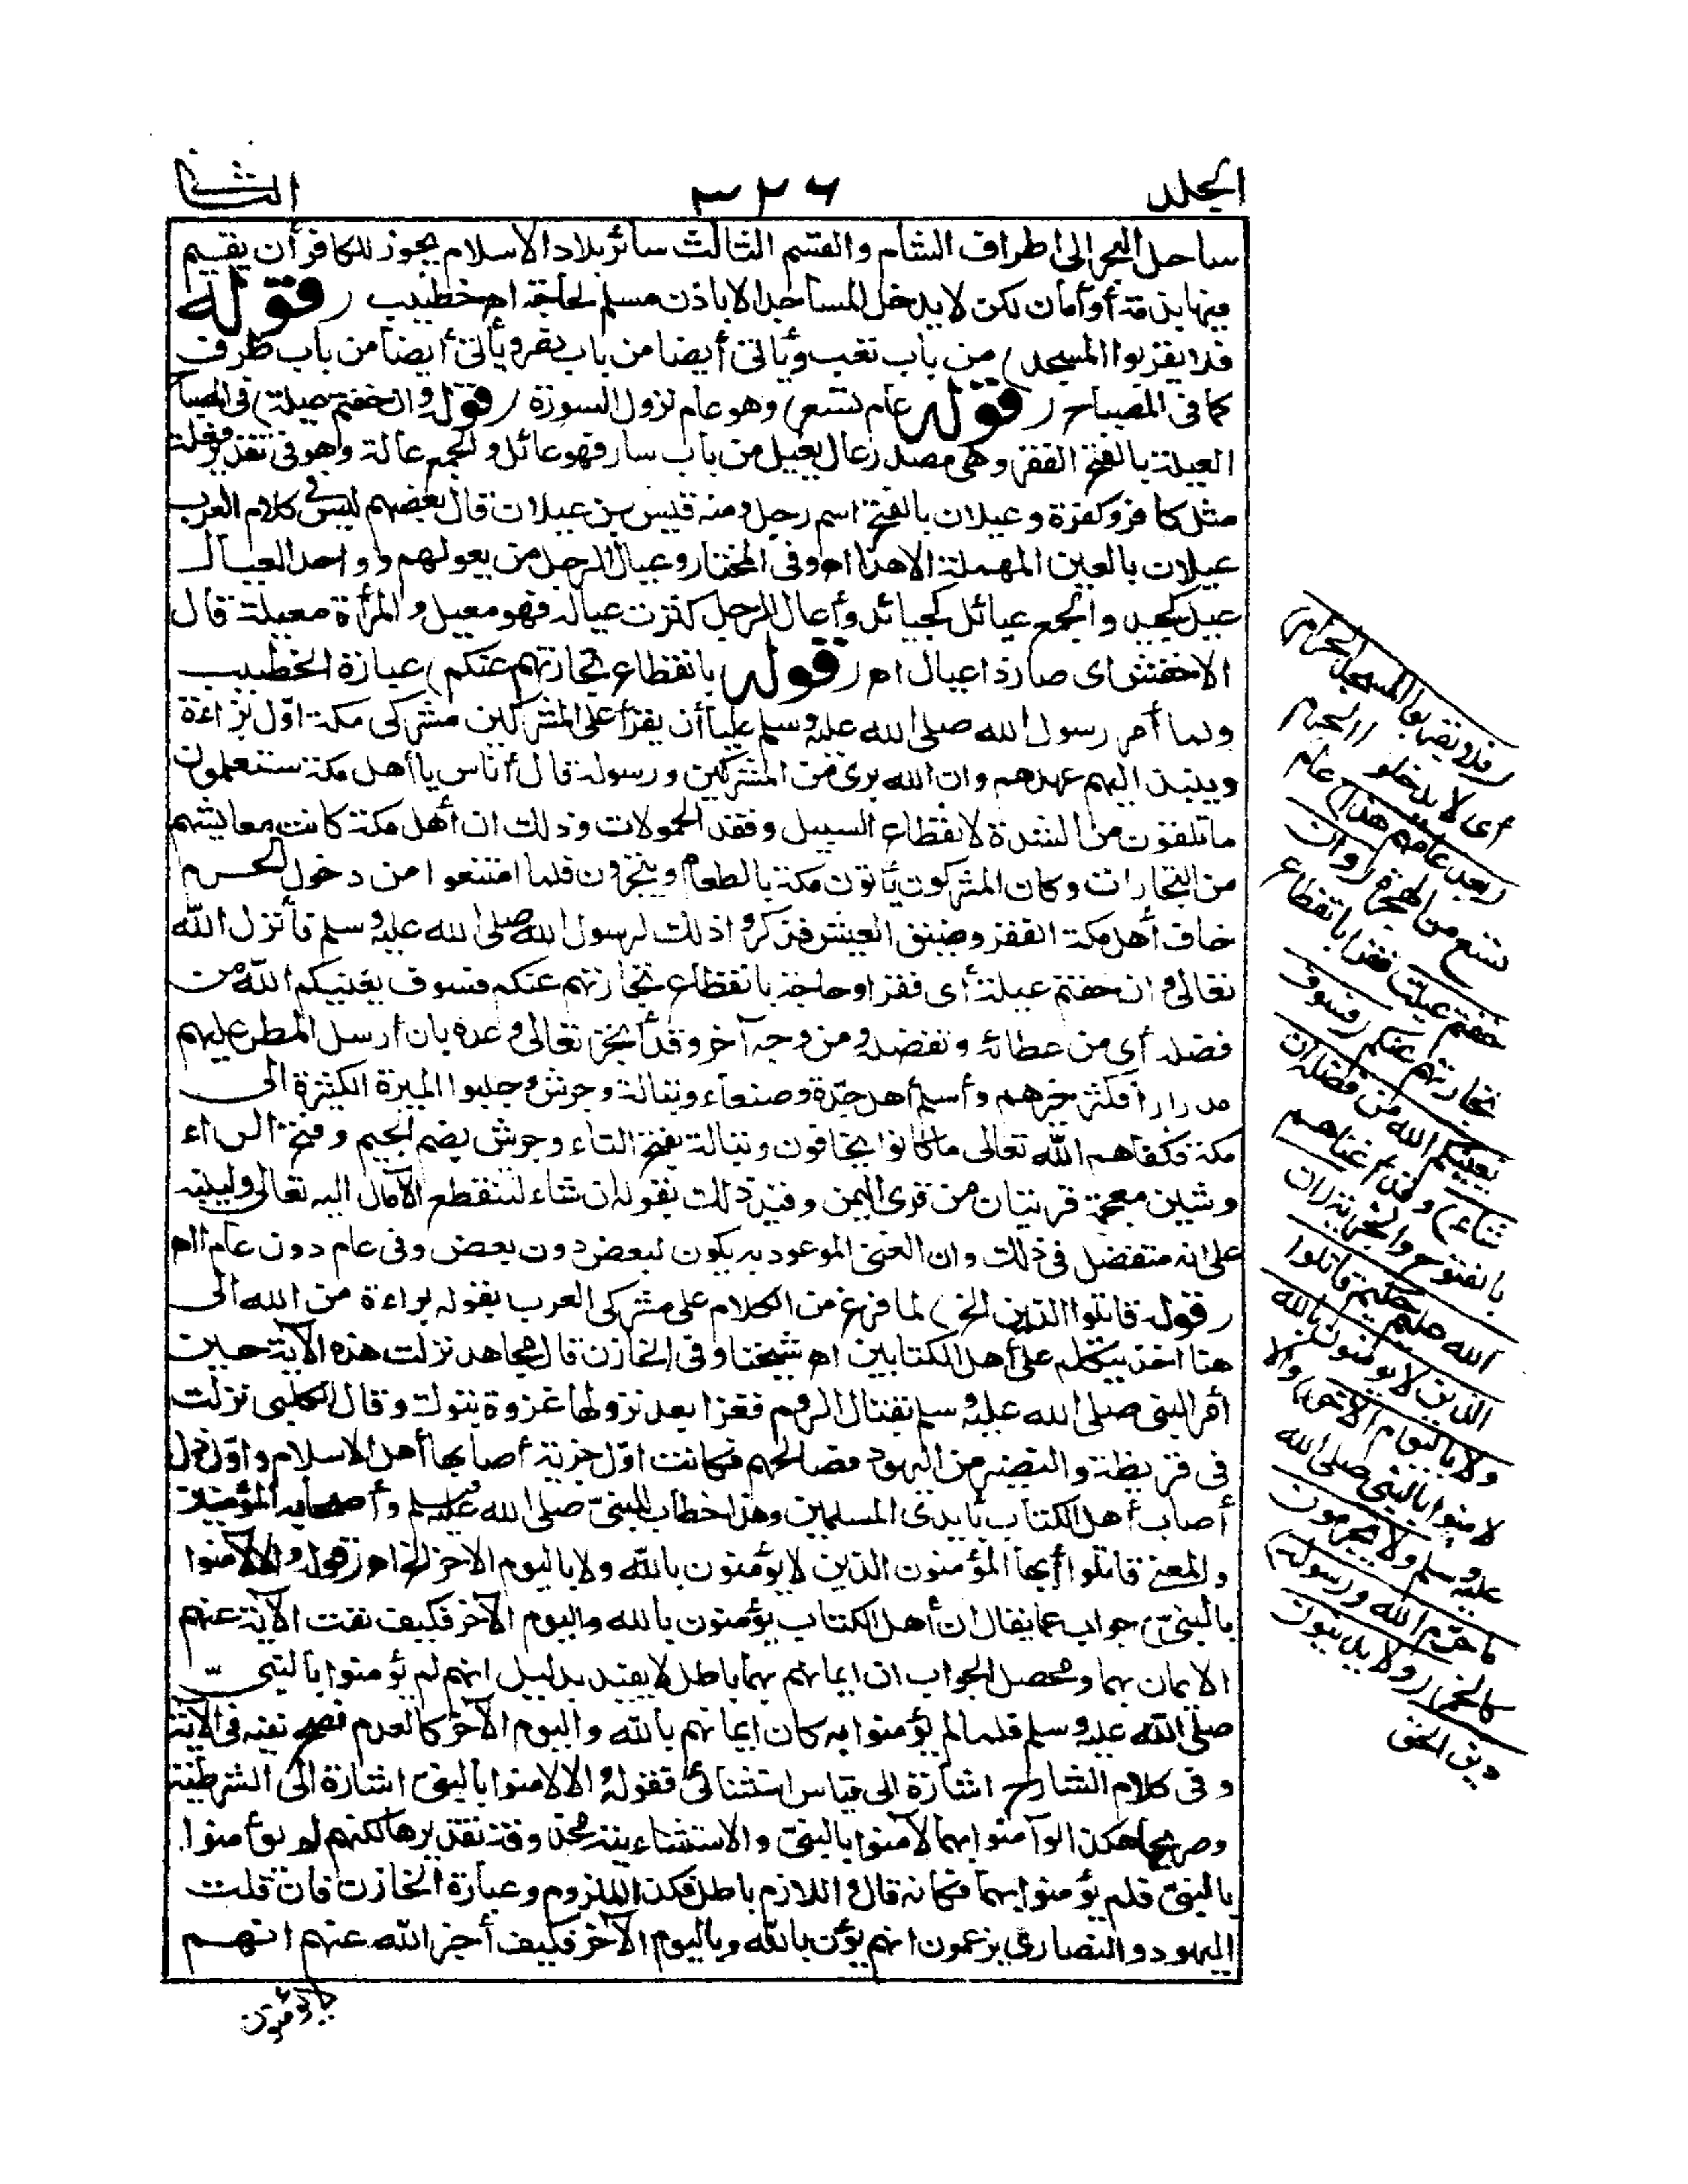 الجلد
٣٢٦
الثانى
ساحل البحر الى اطراف الشام والقسم الثالث سائر بلاد الاسلام يجوز للكافر أن يقيم
فيها بذمة أو أمان لكن لا يدخل المساجد الا باذن مسلم لحاجة اه خطيب (قوله
فلا يقربوا المسجد) من باب تعب ويأتى أيضا من باب يقر ويأتى أيضا من باب ظرف
كما فى المصباح (قوله عام تسع) وهو عام نزول السورة (قوله وان خفتم عيلة) فى المصباح
العيلة بالفتح الفقر وهى مصدر عال يعيل من باب سار فهو عائل والجمع عالة وهو فى تقدير فعلة
مثل كافر وكفرة وعيلان بالفتح اسم رجل ومنه قيس بن عيلان قال بعضهم ليس فى كلام العرب
عيلان بالعين المهملة الا هذا اه وفى المختار وعيال الرجل من يعولهم وواحد العيال
عيل كجيد والجمع عيائل كجيائد وأعال الرجل كثرت عياله فهو معيل والمرأة معيلة قال
الاخفش اى صار ذا عيال اه (قوله بانقطاع تجارتهم عنكم) عبارة الخطيب
ولما أمر رسول الله صلى الله عليه وسلم عليا أن يقرأ على المشركين مشركى مكة اوّل براءة
وينبذ اليهم عهدهم وان الله برئ من المشركين ورسوله قال أناس يا أهل مكة ستعلمون
ما تلقون من الشدة لانقطاع السبيل وفقد الحمولات وذلك ان أهل مكة كانت معايشهم
من التجارات وكان المشركون يأتون مكة بالطعام ويتجرون فلما امتنعوا من دخول الحرم
خاف أهل مكة الفقر وضيق العيش فذكروا ذلك لرسول الله صلى الله عليه وسلم فأنزل الله
تعالى وان خفتم عيلة أى فقرا وحاجة بانقطاع تجارتهم عنكم فسوف يغنيكم الله من
فضله أى من عطائه وتفضله ومن وجه آخر وقد أنجز تعالى وعده بان أرسل المطر عليهم
مدرارا فكثر خيرهم وأسلم أهل جدة وصنعاء وتبالة وجرش وجلبوا الميرة الكثيرة الى
مكة فكفاهم الله تعالى ما كانوا يخافون وتبالة بفتح التاء وجرش بضم الجيم وفتح الراء
وشين معجمة قريتان من قرى اليمن وقيد ذلك بقوله ان شاء لتنقطع الآمال اليه تعالى ولينبه
على انه متفضل فى ذلك وان الغنى الموعود به يكون لبعض دون بعض وفى عام دون عام اه
(قوله قاتلوا الذين الخ) لما فرغ من الكلام على مشركى العرب بقوله براءة من الله الى
هنا اخذ يتكلم على أهل الكتابين اه شيخنا وفى الخازن قال مجاهد نزلت هذه الآية حين
أمر النبى صلى الله عليه وسلم بقتال الروم فغزا بعد نزولها غزوة تبوك وقال الكلبى نزلت
فى قريظة والنضير من اليهود فصالحهم فكانت اوّل جزية أصابها أهل الاسلام واوّل ذل
أصاب أهل الكتاب بأيدى المسلمين وهذا خطاب للنبىّ صلى الله عليه وسلم وأصحابه المؤمنين
والمعنى قاتلوا أيها المؤمنون الذين لا يؤمنون بالله ولا باليوم الاخر الخ اه (قوله والا لآمنوا
بالنبىّ) جواب عما يقال ان أهل الكتاب يؤمنون بالله واليوم الآخر فكيف نفت الآية عنهم
الايمان بهما ومحصل الجواب ان ايمانهم بهما باطل لا يفيد بدليل انهم لم يؤمنوا بالنبىّ
صلى الله عليه وسلم فلما لم يؤمنوا به كان ايمانهم بالله واليوم الآخر كالعدم فصح نفيه فى الآية
وفى كلام الشارح اشارة الى قياس استثنائى فقوله والا لآمنوا بالنبىّ اشارة الى الشرطية
وصريحها هكذا لو آمنوا بهما لآمنوا بالنبىّ والاستثنائية محذوفة تقديرها لكنهم لم يؤمنوا
بالنبىّ فلم يؤمنوا بهما فكانه قال واللازم باطل فكذا الملزوم وعبارة الخازن فان قلت
اليهود والنصارى يزعمون انهم يؤمنون بالله وباليوم الآخر فكيف أخبر الله عنهم انهم
لا يؤمنون
(فلا يقربوا المسجد الحرام)
أى لا يدخلوا الحرم
(بعد عامهم هذا) عام
تسع من الهجرة (وان
خفتم عيلة) فقرا بانقطاع
تجارتهم عنكم (فسوف
يغنيكم الله من فضله ان
شاء) وقد أغناهم
بالفتوح والجزية (ان
الله عليم حكيم قاتلوا
الذين لا يؤمنون بالله
ولا باليوم الآخر) والا
لآمنوا بالنبى صلى الله
عليه وسلم (ولا يحرمون
ما حرّم الله ورسوله)
كالخمر (ولا يدينون
دين الحق